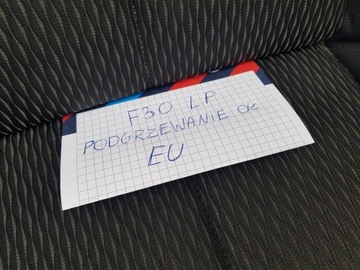 F30 LP
PODGRZEWANIE OK
EU